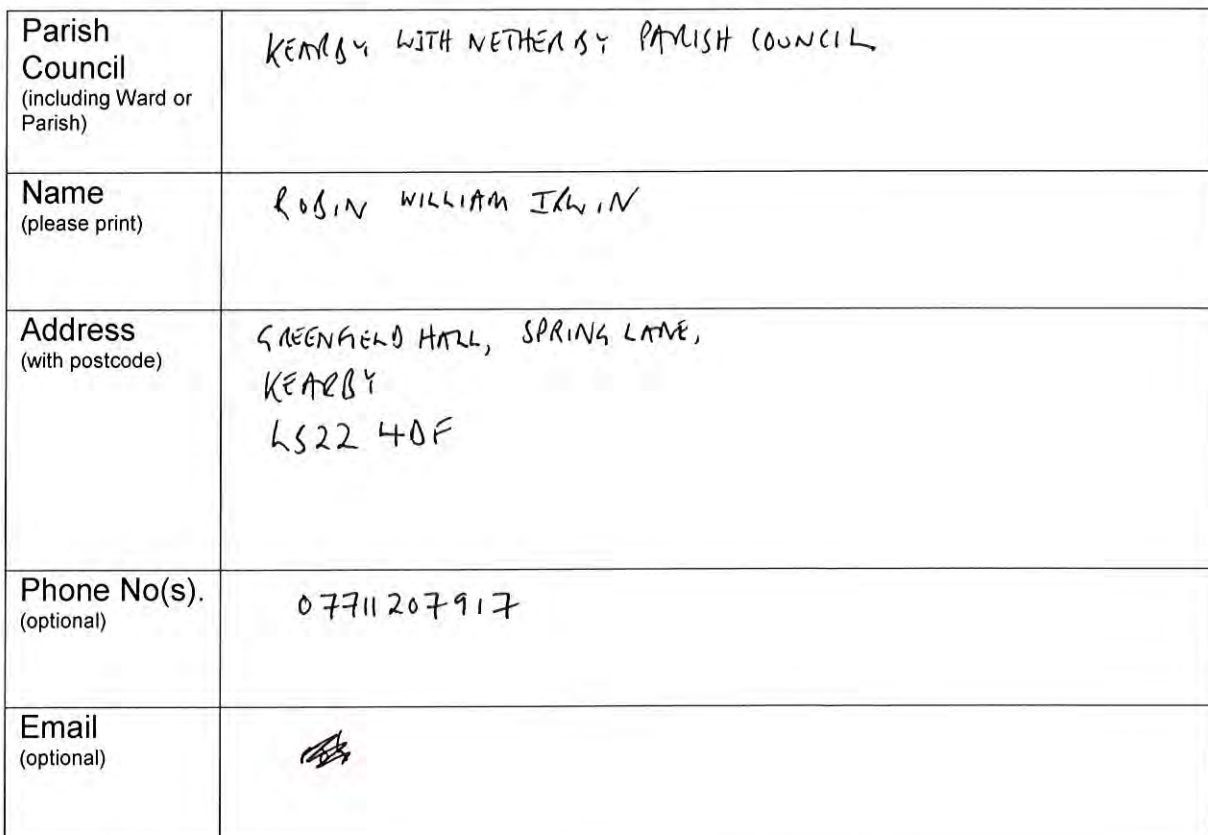 Parish
Council
(including Ward or
Parish)
KEARBY WITH NETHERBY PARISH COUNCIL
Name
(please print)
ROBIN WILLIAM IRWIN
Address
(with postcode)
GREENFIELD HALL, SPRING LANE,
KEARBY
LS22 4DF
Phone No(s).
(optional)
07711207917
Email
(optional)